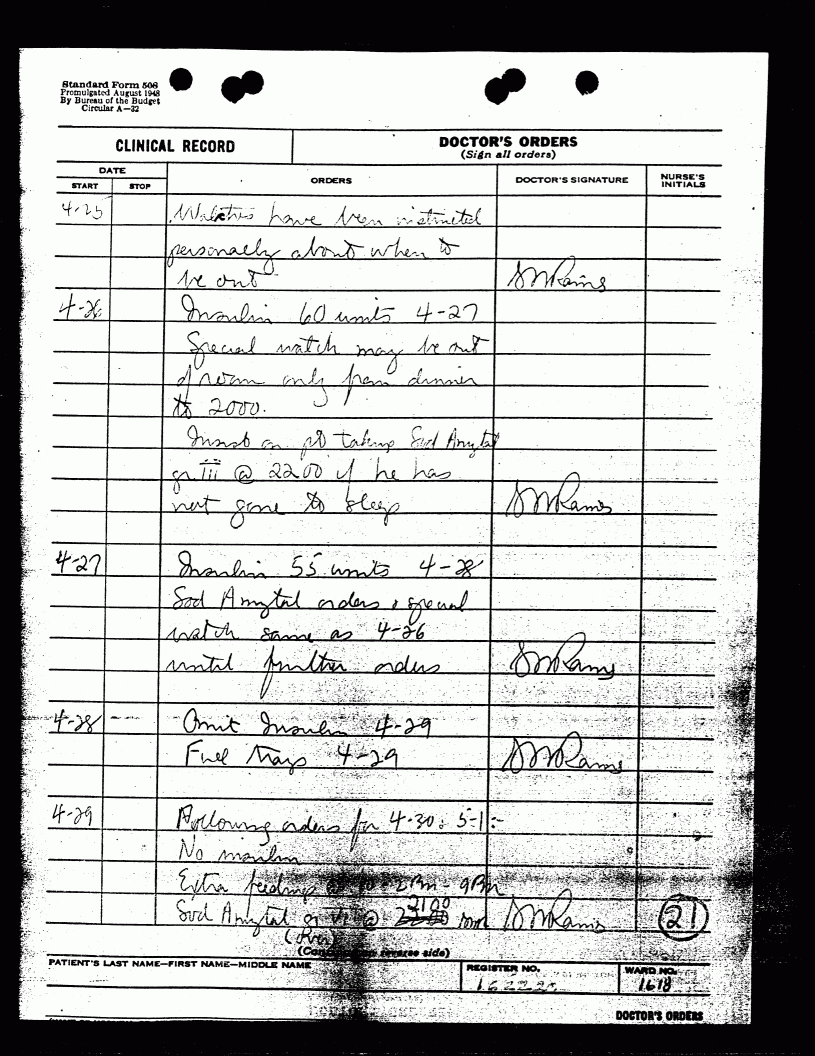 Standard Form 508
Promulgated August 1948
By Bureau of the Budget
Circular A—32
CLINICAL RECORD
DOCTOR'S ORDERS
(Sign all orders)
DATE
START STOP
ORDERS
DOCTOR'S SIGNATURE
NURSE'S INITIALS
4-25 Watches have been instructed
personally about when to
be out
4-26 Insulin 60 units 4-27
Special watch may be out
of room only from dinner
to 2000.
Insist on pt taking Sod Amytal
gr III @ 2200 if he has
not gone to sleep
4-27 Insulin 55 units 4-28
Sod Amytal orders & special
watch same as 4-26
until further orders
4-28 Omit Insulin 4-29
Full trays 4-29
4-29 Following orders for 4-30 & 5-1:-
No insulin
Extra feedings @ 10 - 2Pm - 9Pm
2100
Sod Amytal gr VI @ 21
(Over)
(Continue on reverse side)
PATIENT'S LAST NAME—FIRST NAME—MIDDLE NAME
REGISTER NO.
WARD NO.
1618
DOCTOR'S ORDERS